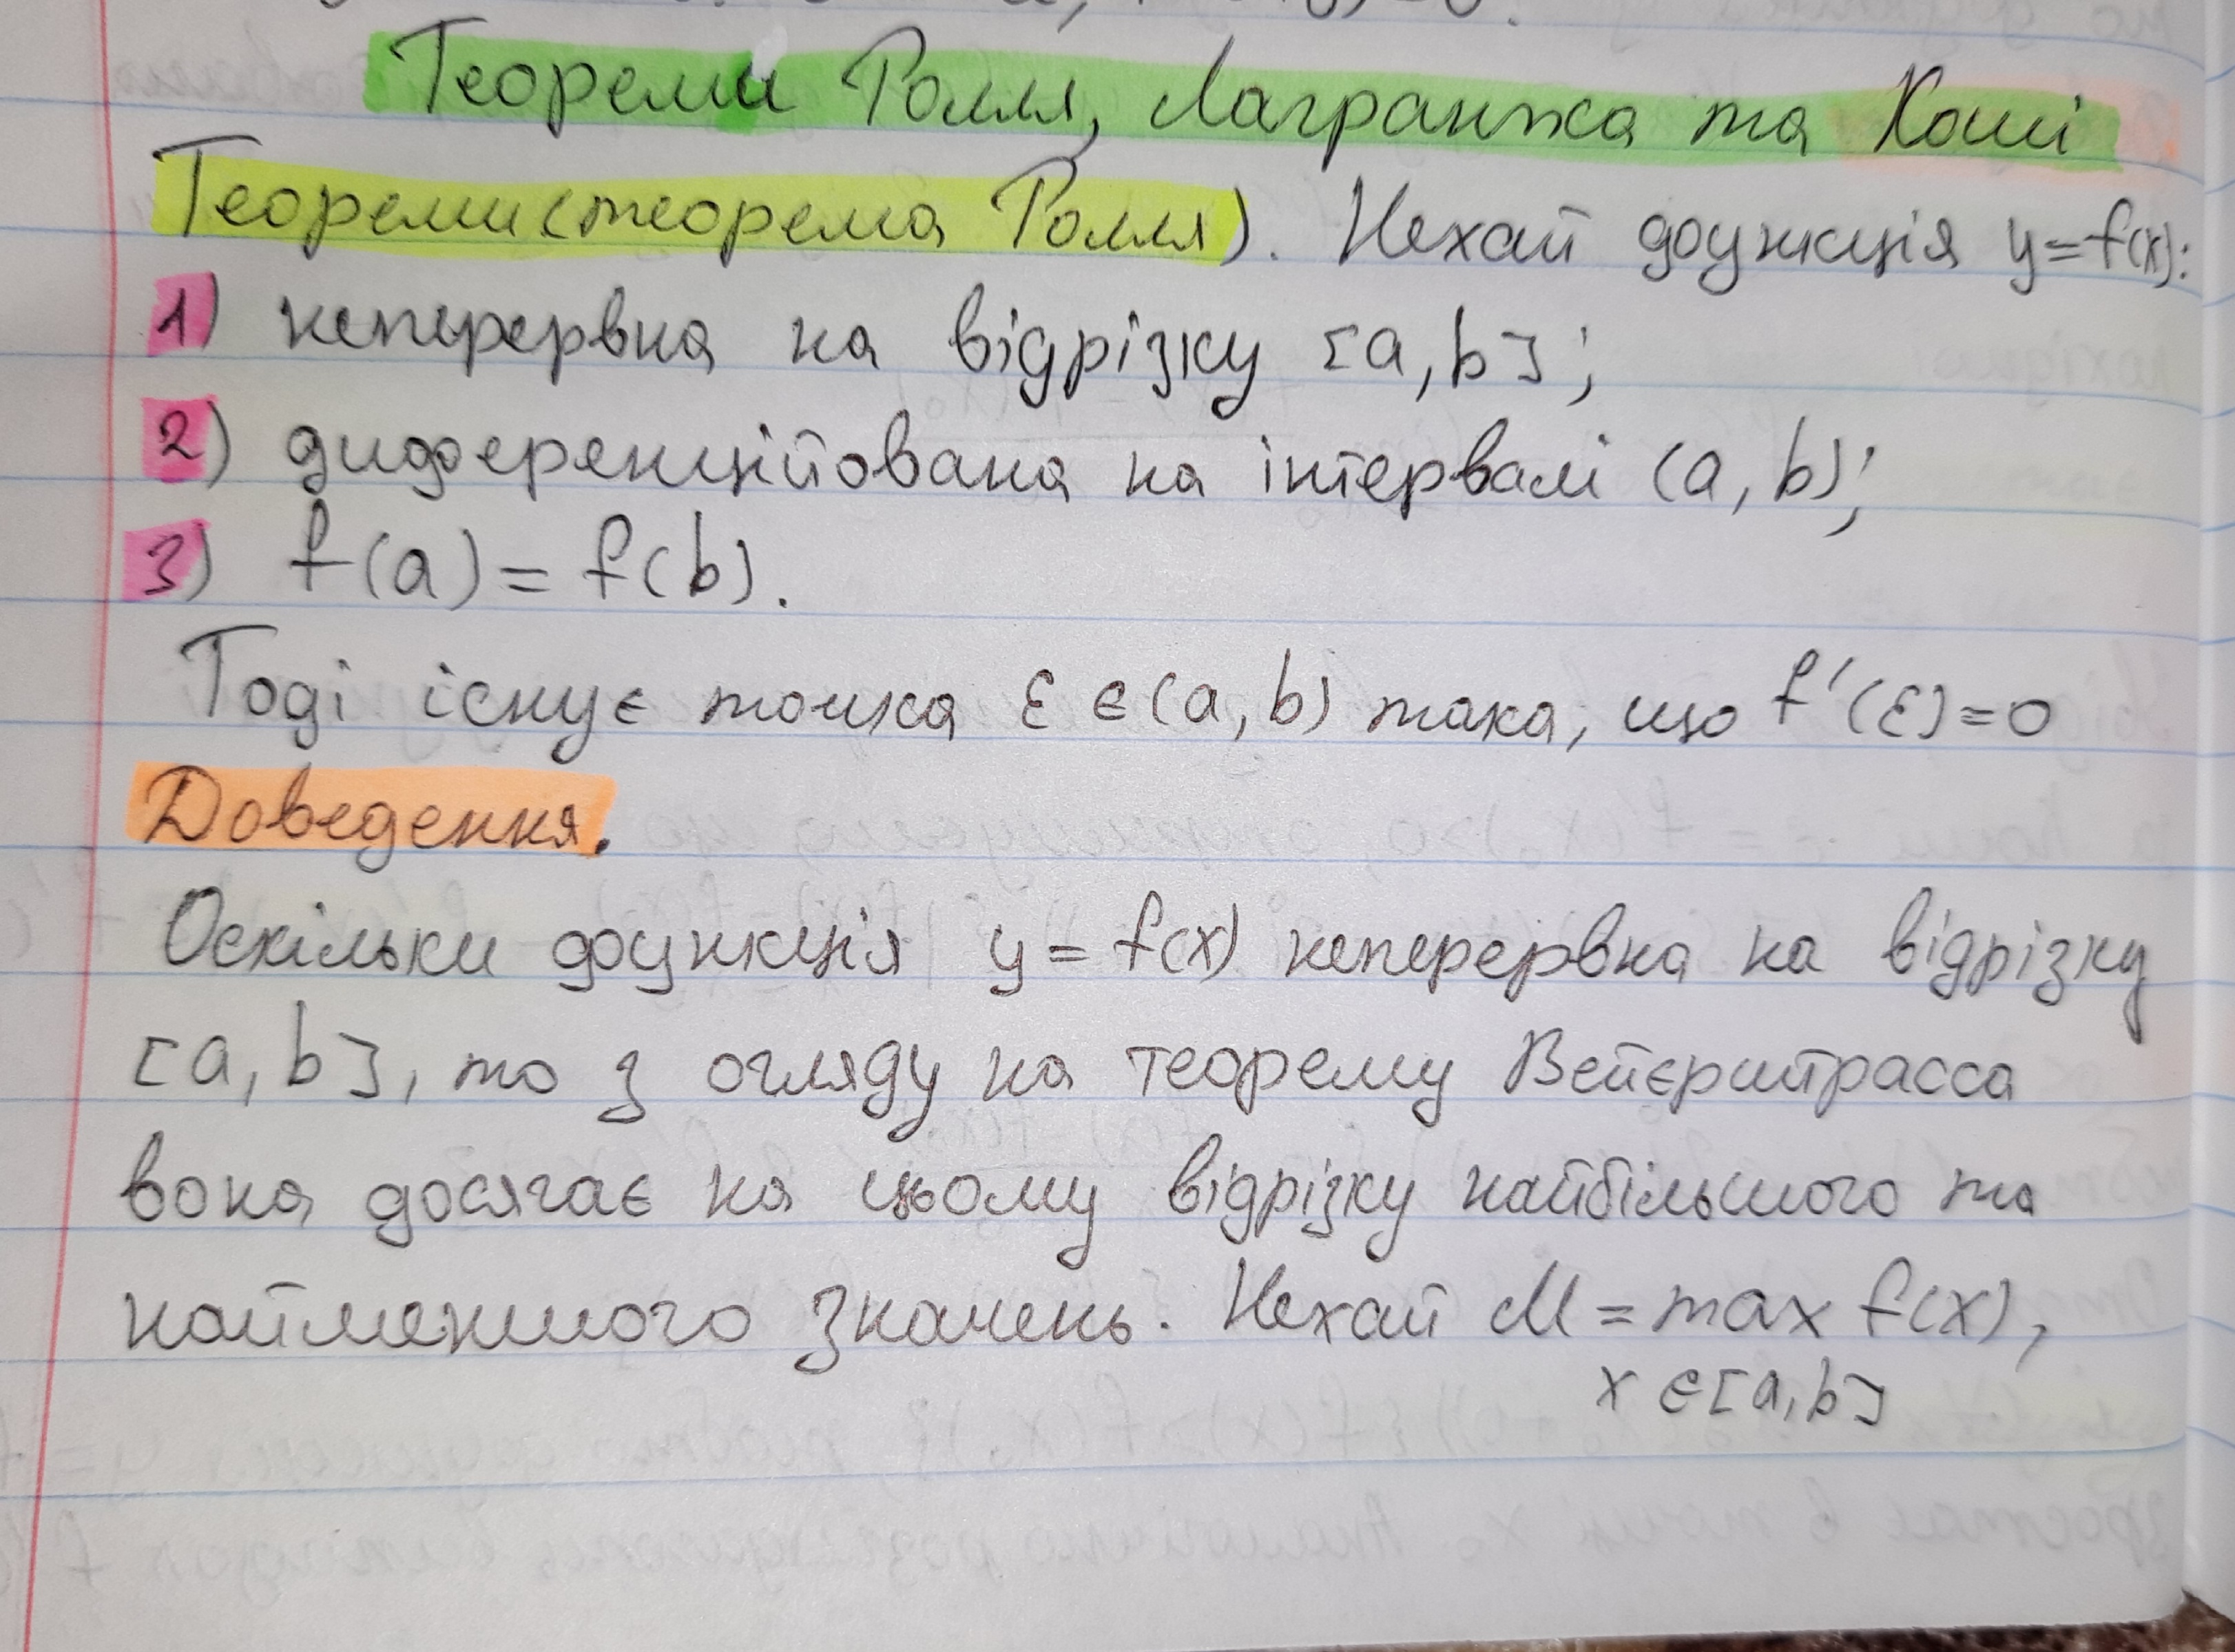 Теореми Ролля, Лагранжа та Коші
Теореми (теорема Ролля). Нехай функція y=f(x):
1) неперервна на відрізку [a,b];
2) диференційована на інтервалі (a,b);
3) f(a)=f(b).
Тоді існує точка ξ ∈ (a,b) така, що f'(ξ)=0
Доведення.
Оскільки функція y=f(x) неперервна на відрізку
[a,b], то з огляду на теорему Вейєрштрасса
вона досягає на цьому відрізку найбільшого та
найменшого значень. Нехай M = max f(x),
x ∈ [a,b]